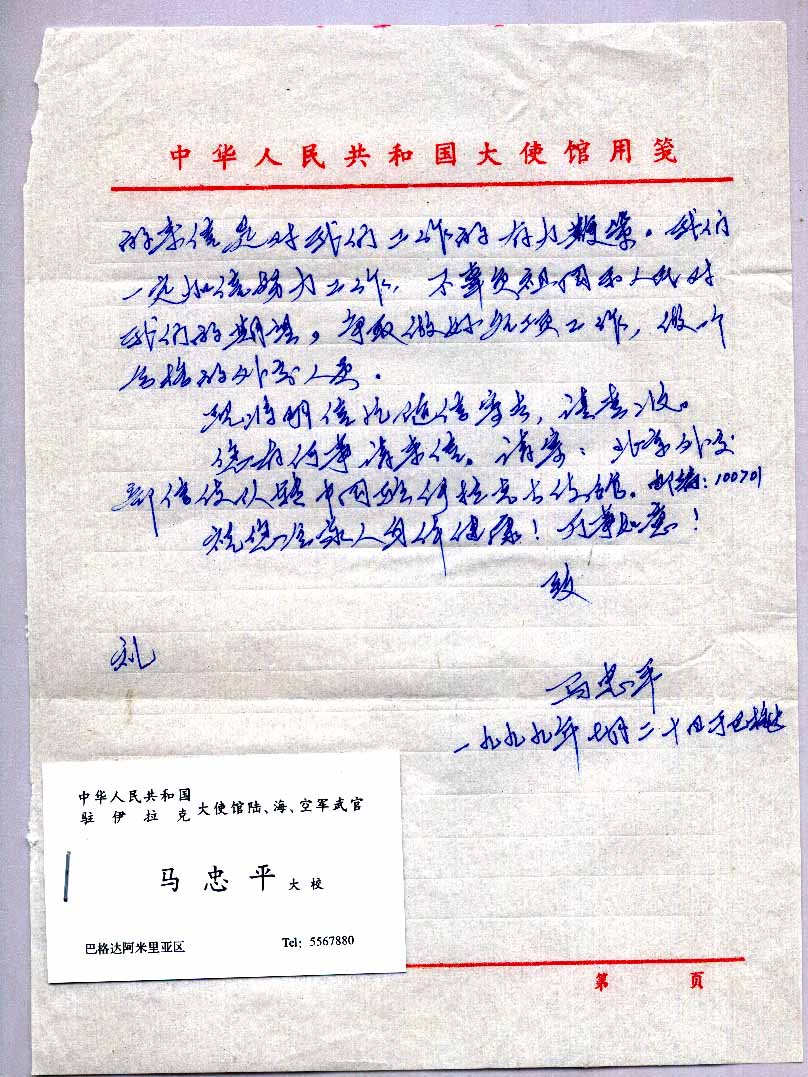 中华人民共和国大使馆用笺
的来信是对我们工作的有力鞭策。我们
一定加倍努力工作，不辜负祖国和人民对
我们的期望，争取做好各项工作，做一个
合格的外交人员。
现将明信片随信寄去，请查收。
您有何事请来信。请寄：北京外交
部信使队转中国驻伊拉克大使馆。邮编：100701
祝您全家人身体健康！万事如意！
致
礼
马忠平
一九九九年七月二十日于巴格达
中华人民共和国
驻伊拉克大使馆陆、海、空军武官
马忠平 大校
巴格达阿米里亚区 Tel: 5567880
第 页